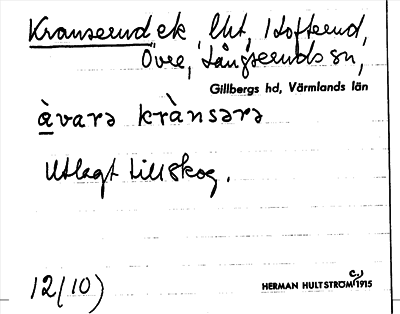 Kranserud ek lht, 1 Tofterud,
Övre, Långseruds sn,
Gillbergs hd, Värmlands län
àvarə krànsərə
Utlagt till skog.
12(10)
HERMAN HULTSTRÖM c.) 1915